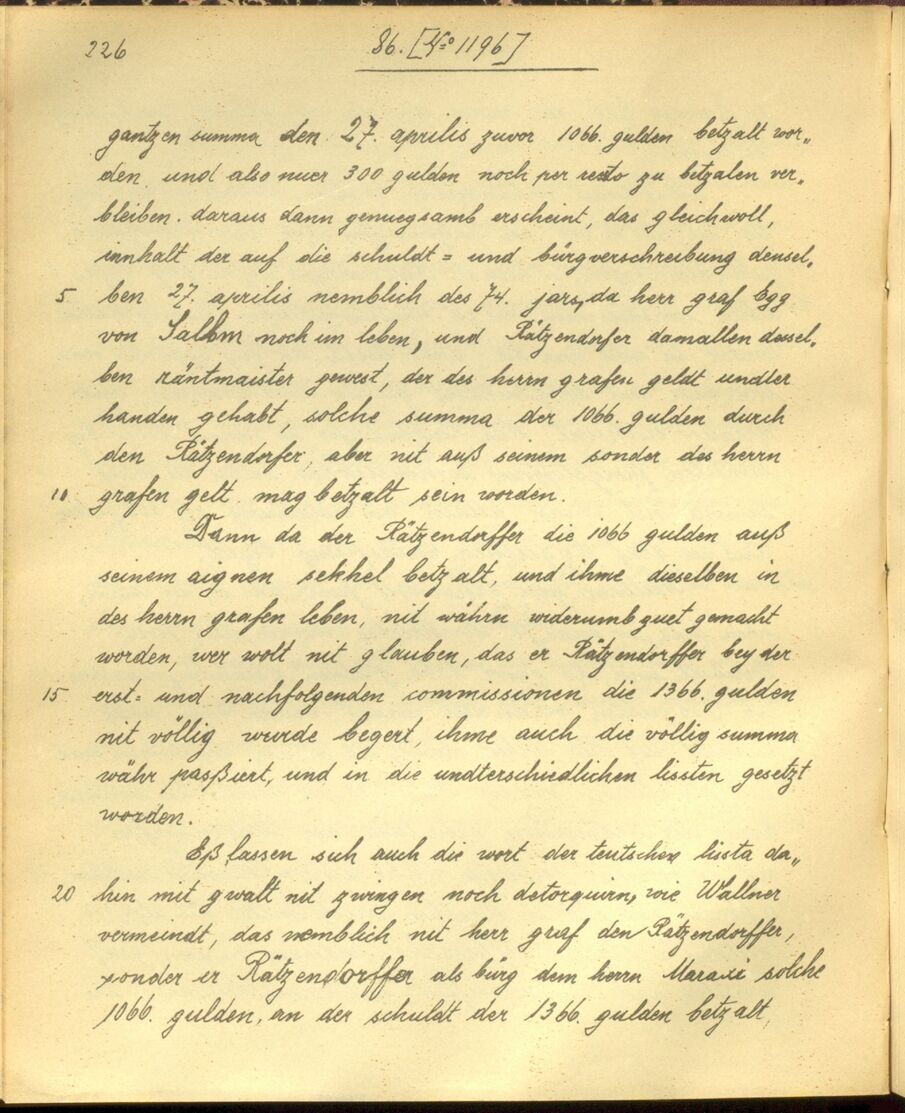 226
86. [No 1196]
gantzen summa den 27. aprilis zuvor 1066. gulden betzalt wor„
den und also nuer 300 gulden noch per resto zu betzalen ver„
bleiben. daraus dann genuegsamb erscheint, das gleichwoll,
innhalt der auf die schuldt= und bürgverschreibung densel„
5. ben 27. aprilis nemblich des 74. jars, da herr graf Egg
von Salbm noch im leben, und Rätzendorfer damallen dessel„
ben räntmaister gewest, der des herrn grafen geldt undter
handen gehabt, solche summa der 1066. gulden durch
den Rätzendorfer, aber nit auß seinem sonder des herrn
10 grafen gelt mag betzalt sein worden.
Dann da der Rätzendorffer die 1066 gulden auß
seinem aignen sekhel betzalt, und ihme dieselben in
des herrn grafen leben, nit währn widerumb guet gemacht
worden, wer wolt nit glauben, das er Rätzendorffer bey der
15 erst= und nachfolgenden commissionen die 1366. gulden
nit völlig wurde begert, ihme auch die völlig summa
währ paßiert, und in die undterschiedlichen lissten gesetzt
worden.
Eß lassen sich auch die wort der teutschen lissta da„
20 hin mit gwalt nit zwingen noch detorquirn, wie Wallner
vermeindt, das nemblich nit herr graf den Rätzendorffer,
sonder er Rätzendorffer als bürg dem herrn Maraxi solche
1066. gulden, an der schuldt der 1366. gulden betzalt